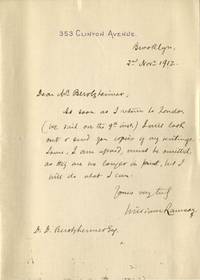 353 CLINTON AVENUE.
Brooklyn,
2nd Novr. 1912.
Dear Mr. Berolzheimer:
As soon as I return to London
(we sail on the 9th inst.) I will look
out & send you copies of my writings.
Some, I am afraid, must be omitted
as they are no longer in print, but I
will do what I can.
Yours very truly
William Ramsay
D. D. Berolzheimer Esq.